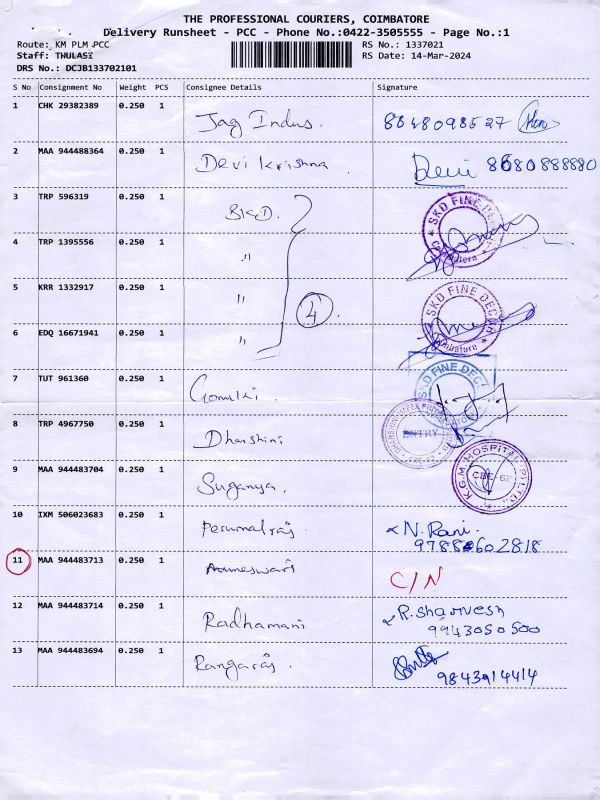 THE PROFESSIONAL COURIERS, COIMBATORE
Delivery Runsheet - PCC - Phone No.:0422-3505555 - Page No.:1
Route: KM PLM PCC RS No.: 1337021
Staff: THULASI RS Date: 14-Mar-2024
DRS No.: DCJB133702101
S No Consignment No Weight PCS Consignee Details Signature
1 CHK 29382389 0.250 1 Jag Indus. 8848098527
2 MAA 944488364 0.250 1 Devi krishna Devi 8680888880
3 TRP 596319 0.250 1 SKD. SKD FINE DECOR
4 TRP 1395556 0.250 1 " Coimbatore
5 KRR 1332917 0.250 1 " 4 SKD FINE DECOR
6 EDQ 16671941 0.250 1 " Coimbatore
7 TUT 961360 0.250 1 SKD FINE DECOR
8 TRP 4967750 0.250 1 Dharshini ENTRY
9 MAA 944483704 0.250 1 Suganya. K.G.M. HOSPITAL (P) LTD., CBE-62
10 IXM 506023683 0.250 1 Perumalraj N. Rani.
9788602818
11 MAA 944483713 0.250 1 C/N
12 MAA 944483714 0.250 1 Radhamani R. Sharvesh
9943050500
13 MAA 944483694 0.250 1 Rangaraj. 9843914414